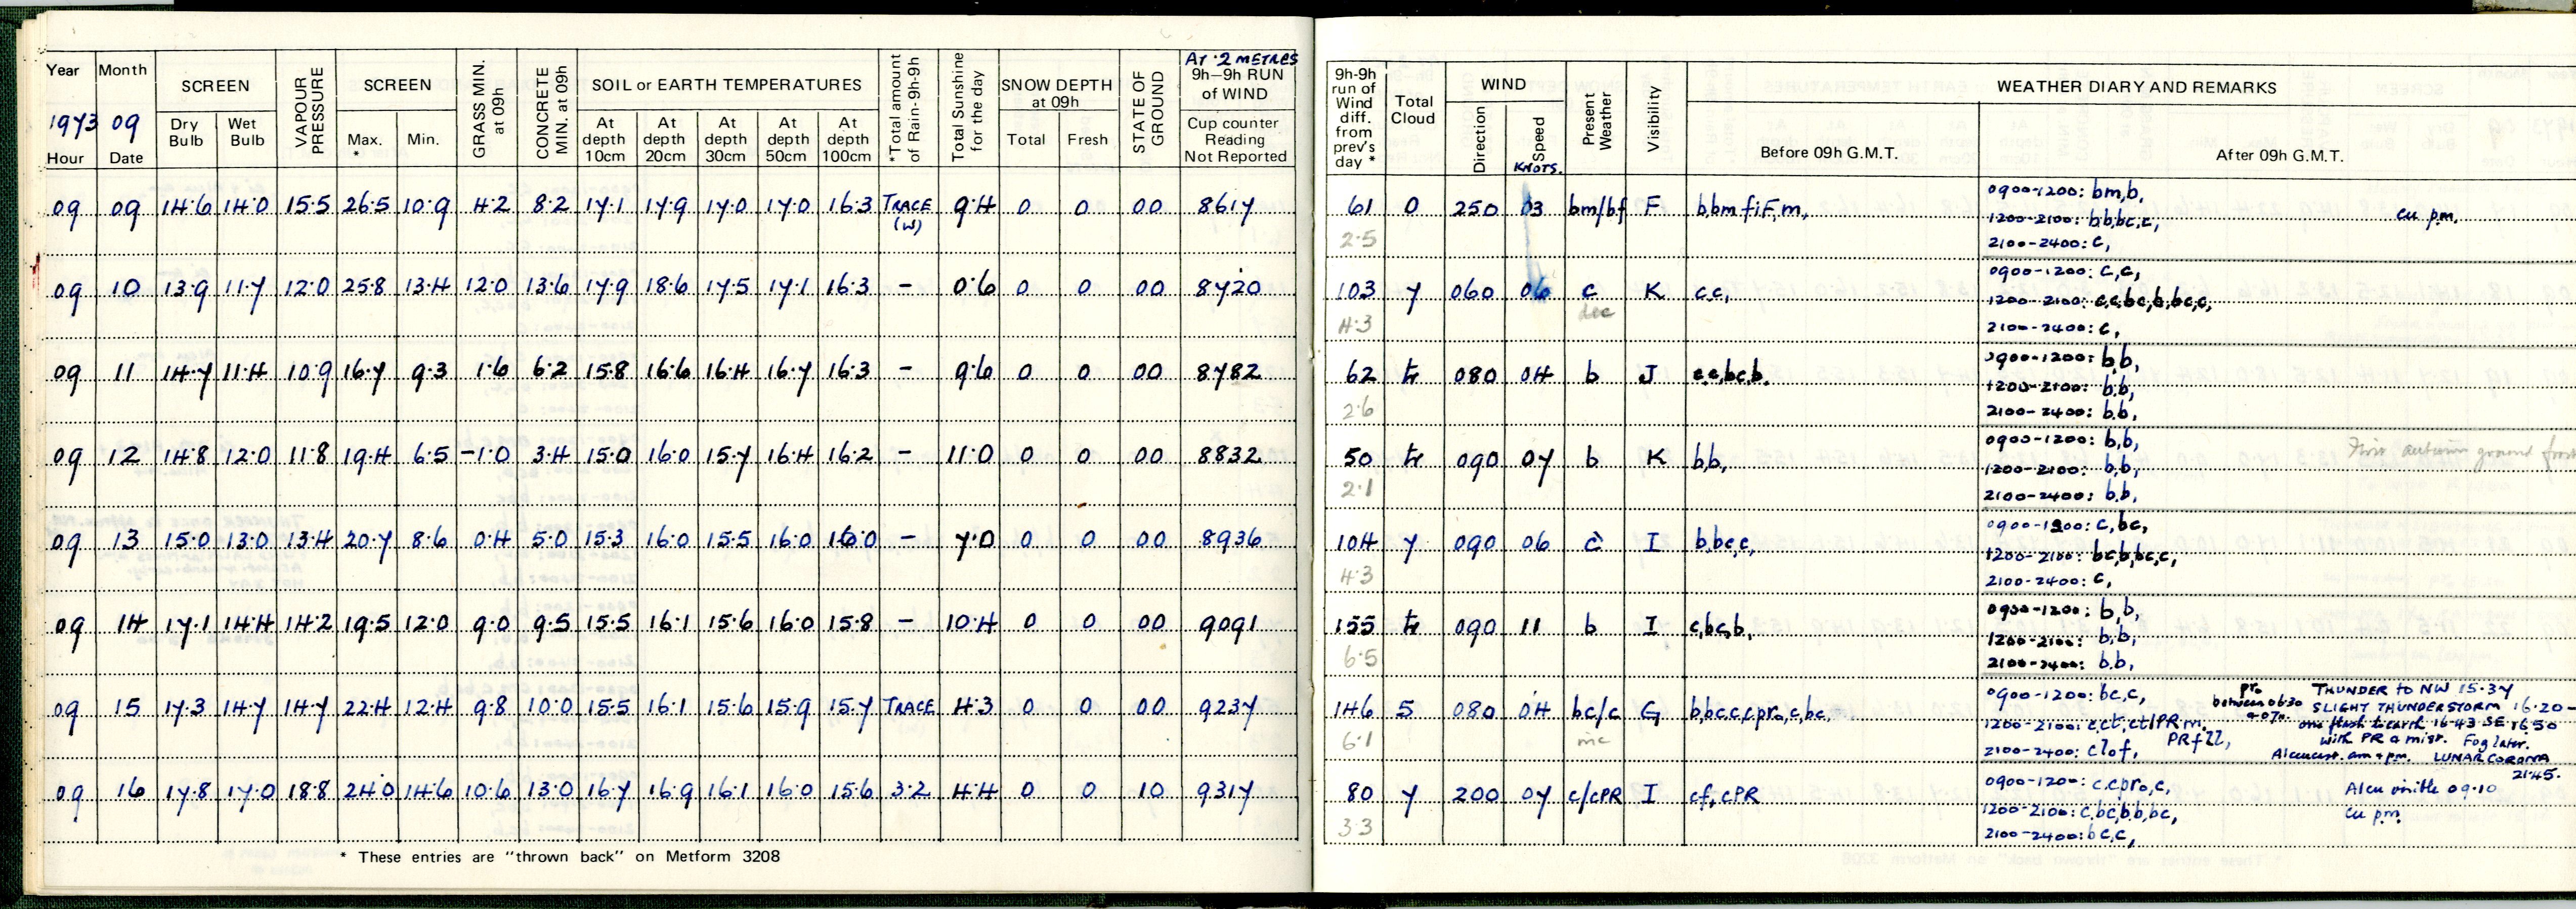 Year Month SCREEN VAPOUR PRESSURE SCREEN GRASS MIN. at 09h CONCRETE MIN. at 09h SOIL or EARTH TEMPERATURES *Total amount of Rain-9h-9h Total Sunshine for the day SNOW DEPTH at 09h STATE OF GROUND AT ·2 METRES 9h–9h RUN of WIND
1973 09 Dry Bulb Wet Bulb Max. * Min. At depth 10cm At depth 20cm At depth 30cm At depth 50cm At depth 100cm Total Fresh Cup counter Reading Not Reported
Hour Date
09 09 14·6 14·0 15·5 26·5 10·9 4·2 8·2 17·1 17·9 17·0 17·0 16·3 TRACE (W) 9·4 0 0 00 8617
09 10 13·9 11·7 12·0 25·8 13·4 12·0 13·6 17·9 18·6 17·5 17·1 16·3 – 0·6 0 0 00 8720
09 11 14·7 11·4 10·9 16·7 9·3 1·6 6·2 15·8 16·6 16·4 16·7 16·3 – 9·6 0 0 00 8782
09 12 14·8 12·0 11·8 19·4 6·5 –1·0 3·4 15·0 16·0 15·7 16·4 16·2 – 11·0 0 0 00 8832
09 13 15·0 13·0 13·4 20·7 8·6 0·4 5·0 15·3 16·0 15·5 16·0 16·0 – 7·0 0 0 00 8936
09 14 17·1 14·4 14·2 19·5 12·0 9·0 9·5 15·5 16·1 15·6 16·0 15·8 – 10·4 0 0 00 9091
09 15 17·3 14·7 14·7 22·4 12·4 9·8 10·0 15·5 16·1 15·6 15·9 15·7 TRACE 4·3 0 0 00 9237
09 16 17·8 17·0 18·8 24·0 14·6 10·6 13·0 16·7 16·9 16·1 16·0 15·6 3·2 4·4 0 0 10 9317
* These entries are "thrown back" on Metform 3208
9h-9h run of Wind diff. from prev's day * Total Cloud WIND Present Weather Visibility WEATHER DIARY AND REMARKS
Direction Speed KNOTS. Before 09h G.M.T. After 09h G.M.T.
0900-1200: bm,b,
61 0 250 03 bm/bf F b,bm fiF,m, 1200-2100: b,b,bc,c, cu p.m.
2·5 2100-2400: c,
0900-1200: c,c,
103 7 060 06 c K c,c, 1200-2100: c,c,bc,b,bc,c,
4·3 2100-2400: c,
0900-1200: b,b,
62 tr 080 04 b J c,c,bc,b. 1200-2100: b,b,
2·6 2100-2400: b,b,
0900-1200: b,b, First autumn ground frost
50 tr 090 07 b K b,b, 1200-2100: b,b,
2·1 2100-2400: b,b,
0900-1200: c,bc,
104 7 090 06 c I b,bc,c, 1200-2100: bc,b,bc,c,
4·3 2100-2400: c,
0900-1200: b,b,
155 tr 090 11 b I c,bc,b, 1200-2100: b,b,
6·5 2100-2400: b,b,
0900-1200: bc,c, pro between 06·30 & 07·0 THUNDER to NW 15·37
146 5 080 04 bc/c G b,bc,c,cpro,c,bc. SLIGHT THUNDERSTORM 16·20-
1200-2100: c,ct,ctlPR m, one flash to earth 16·43 SE 16·50
6·1 PRfll, with PR & mist. Fog later.
2100-2400: clof, Alcucast. am & pm. LUNAR CORONA 21·45.
0900-1200: c,cpro,c, Alcu visible 09·10
80 7 200 07 c/cPR I cf,cPR 1200-2100: c,bc,b,b,bc, cu p.m.
3·3 2100-2400: bc,c,